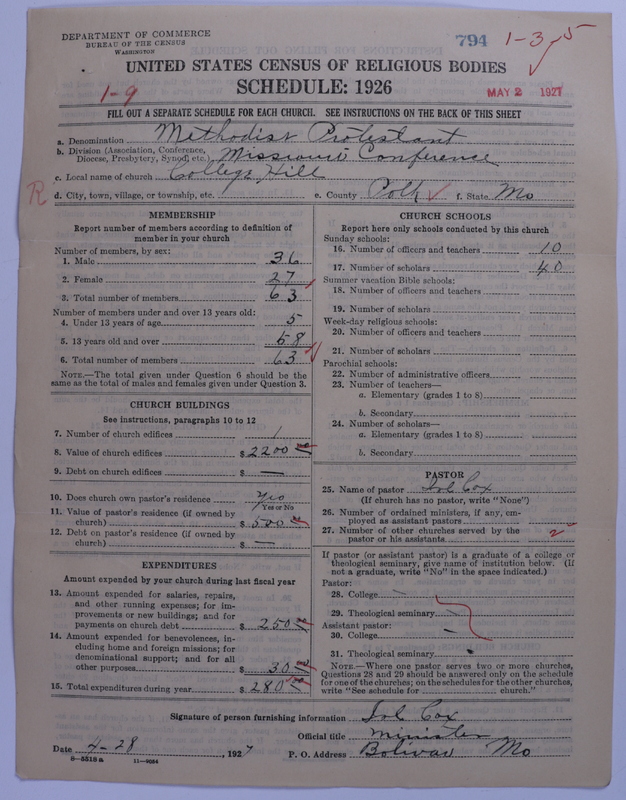 DEPARTMENT OF COMMERCE
BUREAU OF THE CENSUS
WASHINGTON
794
1-35
UNITED STATES CENSUS OF RELIGIOUS BODIES
SCHEDULE: 1926
1-9
MAY 2 1927
FILL OUT A SEPARATE SCHEDULE FOR EACH CHURCH. SEE INSTRUCTIONS ON THE BACK OF THIS SHEET
a. Denomination Methodist Protestant
b. Division (Association, Conference, Diocese, Presbytery, Synod, etc.) Missouri Conference
c. Local name of church College Hill
R
d. City, town, village, or township, etc. e. County Polk f. State Mo
MEMBERSHIP
Report number of members according to definition of
member in your church
Number of members, by sex:
1. Male 36
2. Female 27
3. Total number of members 63
Number of members under and over 13 years old:
4. Under 13 years of age 5
5. 13 years old and over 58
6. Total number of members 63
NOTE.—The total given under Question 6 should be
same as the total of males and females given under Question 3.
CHURCH BUILDINGS
See instructions, paragraphs 10 to 12
7. Number of church edifices 1
8. Value of church edifices $ 2200
9. Debt on church edifices $ —
10. Does church own pastor's residence Yes
Yes or No
11. Value of pastor's residence (if owned by
church) $ 500
12. Debt on pastor's residence (if owned by
church) $ —
EXPENDITURES
Amount expended by your church during last fiscal year
13. Amount expended for salaries, repairs,
and other running expenses; for im-
provements or new buildings; and for
payments on church debt $ 250
14. Amount expended for benevolences, in-
cluding home and foreign missions; for
denominational support; and for all
other purposes $ 30
15. Total expenditures during year $ 280
CHURCH SCHOOLS
Report here only schools conducted by this church
Sunday schools:
16. Number of officers and teachers 10
17. Number of scholars 40
Summer vacation Bible schools:
18. Number of officers and teachers
19. Number of scholars
Week-day religious schools:
20. Number of officers and teachers
21. Number of scholars
Parochial schools:
22. Number of administrative officers
23. Number of teachers—
a. Elementary (grades 1 to 8)
b. Secondary
24. Number of scholars—
a. Elementary (grades 1 to 8)
b. Secondary
PASTOR
25. Name of pastor Sol Cox
(If church has no pastor, write "None")
26. Number of ordained ministers, if any, em-
ployed as assistant pastors
27. Number of other churches served by the
pastor or his assistants 2
If pastor (or assistant pastor) is a graduate of a college or
theological seminary, give name of institution below. (If
not a graduate, write "No" in the space indicated.)
Pastor:
28. College —
29. Theological seminary —
Assistant pastor:
30. College —
31. Theological seminary
NOTE.—Where one pastor serves two or more churches,
Questions 28 and 29 should be answered only on the schedule
for one of the churches; on the schedules for the other churches,
write "See schedule for church."
Signature of person furnishing information Sol Cox
Official title minister
Date 4-28, 1927 P. O. Address Bolivar Mo
8-5518a 11-9034